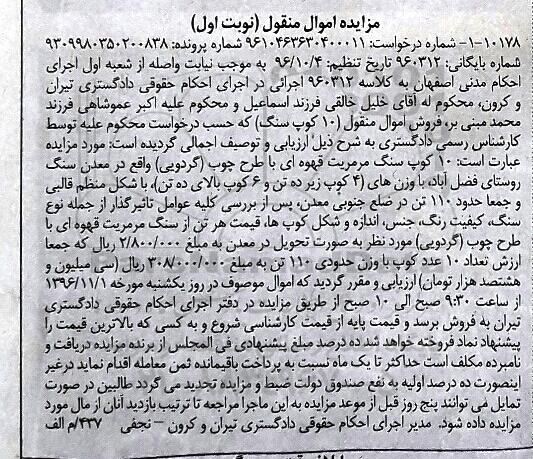 مزایده اموال منقول (نوبت اول)
۱-۱۰۱۷۸- شماره درخواست: ۹۶۱۰۴۶۳۶۳۰۴۰۰۰۱۱ شماره پرونده: ۹۳۰۹۹۸۰۳۵۰۲۰۰۸۳۸
شماره بایگانی: ۹۶۰۳۱۲ تاریخ تنظیم: ۹۶/۱۰/۴ به موجب نیابت واصله از شعبه اول اجرای
احکام مدنی اصفهان به کلاسه ۹۶۰۳۱۲ اجرائی در اجرای احکام حقوقی دادگستری تیران
و کرون، محکوم له آقای خلیل خالقی فرزند اسماعیل و محکوم علیه اکبر عموشاهی فرزند
محمد مبنی بر، فروش اموال منقول (۱۰ کوپ سنگ) که حسب درخواست محکوم علیه توسط
کارشناس رسمی دادگستری به شرح ذیل ارزیابی و توصیف اجمالی گردیده است: مورد مزایده
عبارت است: ۱۰ کوپ سنگ مرمریت قهوه ای با طرح چوب (گردویی) واقع در معدن سنگ
روستای فضل آباد، با وزن های (۴ کوپ زیر ده تن و ۶ کوپ بالای ده تن)، با شکل منظم قالبی
و جمعا حدود ۱۱۰ تن در ضلع جنوبی معدن، پس از بررسی کلیه عوامل تاثیرگذار از جمله نوع
سنگ، کیفیت رنگ، جنس، اندازه و شکل کوپ ها، قیمت هر تن از سنگ مرمریت قهوه ای با
طرح چوب (گردویی) مورد نظر به صورت تحویل در معدن به مبلغ ۲/۸۰۰/۰۰۰ ریال که جمعا
ارزش تعداد ۱۰ عدد کوپ با وزن حدودی ۱۱۰ تن به مبلغ ۳۰۸/۰۰۰/۰۰۰ ریال (سی میلیون و
هشتصد هزار تومان) ارزیابی و مقرر گردید که اموال موصوف در روز یکشنبه مورخه ۱۳۹۶/۱۱/۱
از ساعت ۹:۳۰ صبح الی ۱۰ صبح از طریق مزایده در دفتر اجرای احکام حقوقی دادگستری
تیران به فروش برسد و قیمت پایه از قیمت کارشناسی شروع و به کسی که بالاترین قیمت را
پیشنهاد نماد فروخته خواهد شد ده درصد مبلغ پیشنهادی فی المجلس از برنده مزایده دریافت و
نامبرده مکلف است حداکثر تا یک ماه نسبت به پرداخت باقیمانده ثمن معامله اقدام نماید درغیر
اینصورت ده درصد اولیه به نفع صندوق دولت ضبط و مزایده تجدید می گردد طالبین در صورت
تمایل می توانند پنج روز قبل از موعد مزایده به این ماجرا مراجعه تا ترتیب بازدید آنان از مال مورد
مزایده داده شود. مدیر اجرای احکام حقوقی دادگستری تیران و کرون – نجفی ۴۳۷/م الف